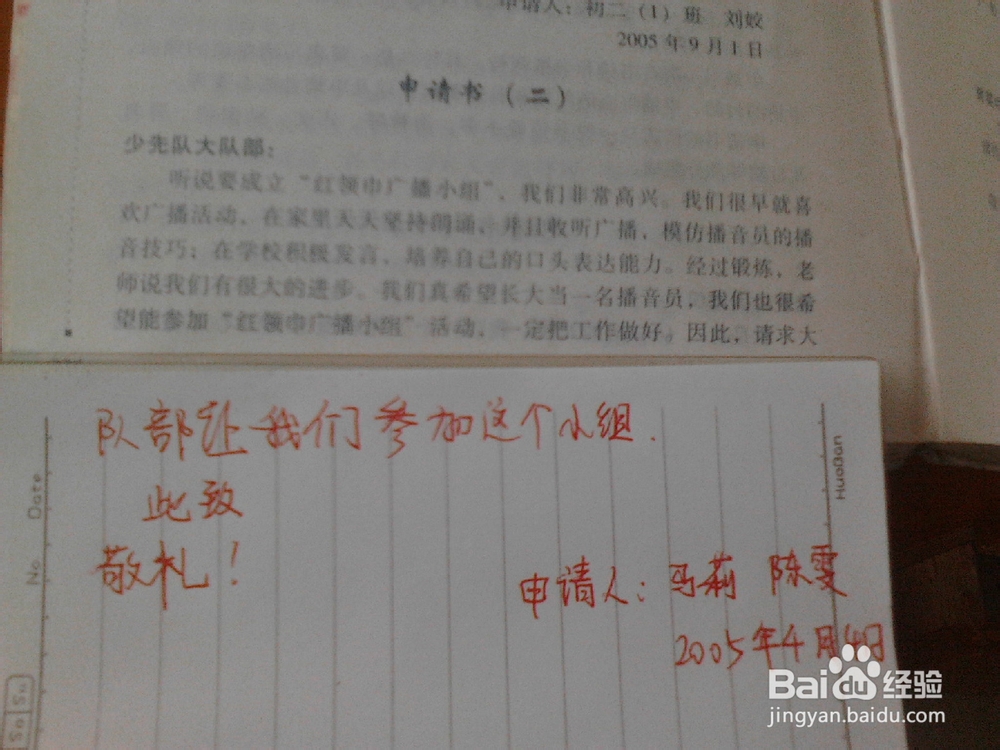 申请人：初二（1）班 刘姣
2005年9月1日
申请书（二）
少先队大队部：
听说要成立“红领巾广播小组”，我们非常高兴。我们很早就喜
欢广播活动，在家里天天坚持朗诵，并且收听广播，模仿播音员的播
音技巧；在学校积极发言，培养自己的口头表达能力。经过锻炼，老
师说我们有很大的进步。我们真希望长大当一名播音员，我们也很希
望能参加“红领巾广播小组”活动，一定把工作做好。因此，请求大
队部让我们参加这个小组.
此致
敬礼！
申请人：马莉 陈雯
2005年4月4日
No Date
HuaBan
Baidu经验
jingyan.baidu.com